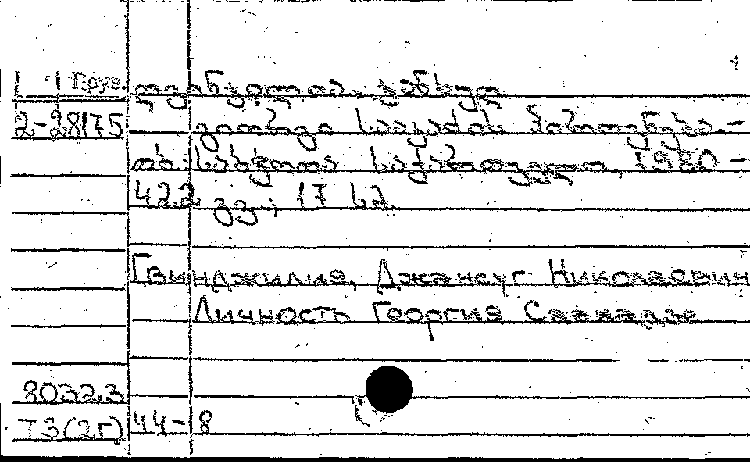 Груз.
2-28175 გიორგი სააკაძის პიროვნება.-
თბ. საბჭოთა საქართველო, 1980 -
422 გვ.; 17 სმ.
Гвинджилия, Джансуг Николаевич
Личность Георгия Саакадзе
80323
ТЗ(2Г) 44-8